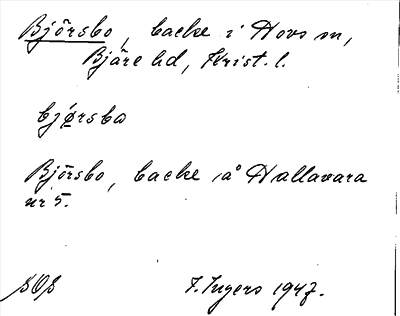 Björsbo, backe i Hovs sn,
Bjäre hd, Krist. l.
bjørsba
Björsbo, backe på Hallavara
nr 5.
I. Ingers 1947.